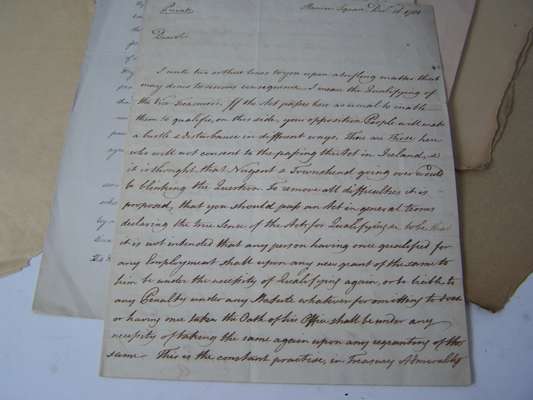 Private
Square Dec.
Dear Sir
I write two or three lines to you upon a trifling matter that
may draw to serious consequence. I mean the Qualifying of
the Vice Treasurers. If the Act passes here as usual to enable
them to qualify on this side, your opposition People will make
a bustle & disturbance in different ways, There are Those here
who will not consent to the passing the Act in Ireland, &
it is thought that Nugent & Townshend going over would
be blinking the Question. To remove all difficulties it is
proposed, that you should pass an Act in general terms
declaring the true Sense of the Acts for Qualifying to be that
it is not intended that any person having once qualified for
any Employment shall upon any new grant of the same to
him be under the necessity of Qualifying again, or be liable to
any Penalty under any Statute whatever for omitting to do so
or having once taken the Oath of his Office shall be under any
necessity of taking the same again upon any regranting of the
same This is the constant practise, in Treasury Admiralty